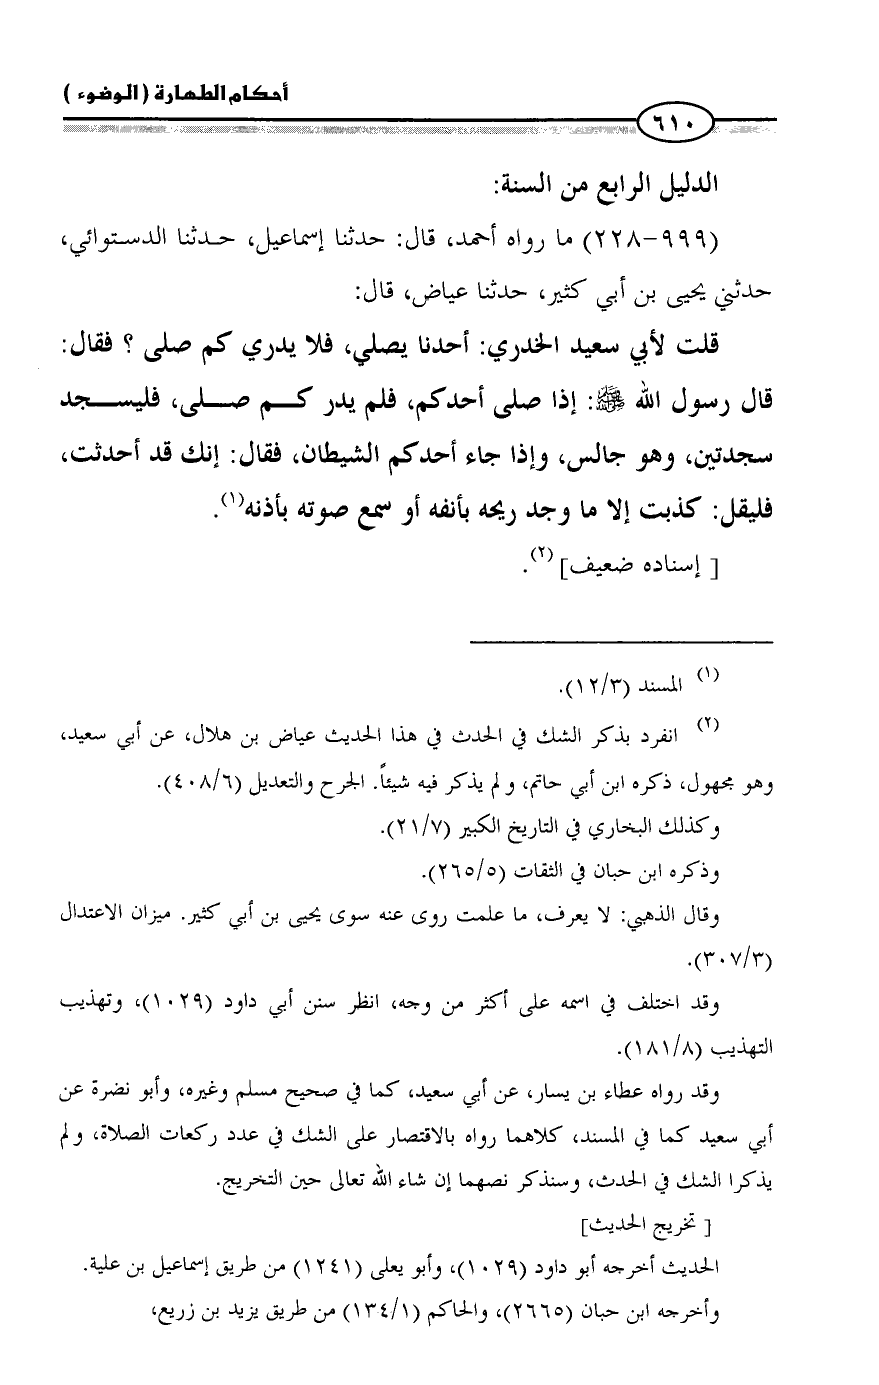 أحكام الطهارة (الوضوء)
٦١٠
الدليل الرابع من السنة:
(٩٩٩-٢٢٨) ما رواه أحمد، قال: حدثنا إسماعيل، حدثنا الدستوائي،
حدثني يحيى بن أبي كثير، حدثنا عياض، قال:
قلت لأبي سعيد الخدري: أحدنا يصلي، فلا يدري كم صلى ؟ فقال:
قال رسول الله ﷺ: إذا صلى أحدكم، فلم يدر كم صلى، فليسجد
سجدتين، وهو جالس، وإذا جاء أحدكم الشيطان، فقال: إنك قد أحدثت،
فليقل: كذبت إلا ما وجد ريحه بأنفه أو سمع صوته بأذنه(١).
[ إسناده ضعيف](٢).
(١) المسند (١٢/٣).
(٢) انفرد بذكر الشك في الحدث في هذا الحديث عياض بن هلال، عن أبي سعيد،
وهو مجهول، ذكره ابن أبي حاتم، ولم يذكر فيه شيئاً. الجرح والتعديل (٤٠٨/٦).
وكذلك البخاري في التاريخ الكبير (٢١/٧).
وذكره ابن حبان في الثقات (٢٦٥/٥).
وقال الذهبي: لا يعرف، ما علمت روى عنه سوى يحيى بن أبي كثير. ميزان الاعتدال
(٣٠٧/٣).
وقد اختلف في اسمه على أكثر من وجه، انظر سنن أبي داود (١٠٢٩)، وتهذيب
التهذيب (١٨١/٨).
وقد رواه عطاء بن يسار، عن أبي سعيد، كما في صحيح مسلم وغيره، وأبو نضرة عن
أبي سعيد كما في المسند، كلاهما رواه بالاقتصار على الشك في عدد ركعات الصلاة، ولم
يذكرا الشك في الحدث، وسنذكر نصهما إن شاء الله تعالى حين التخريج.
[ تخريج الحديث]
الحديث أخرجه أبو داود (١٠٢٩)، وأبو يعلى (١٢٤١) من طريق إسماعيل بن علية.
وأخرجه ابن حبان (٢٦٦٥)، والحاكم (١٣٤/١) من طريق يزيد بن زريع،